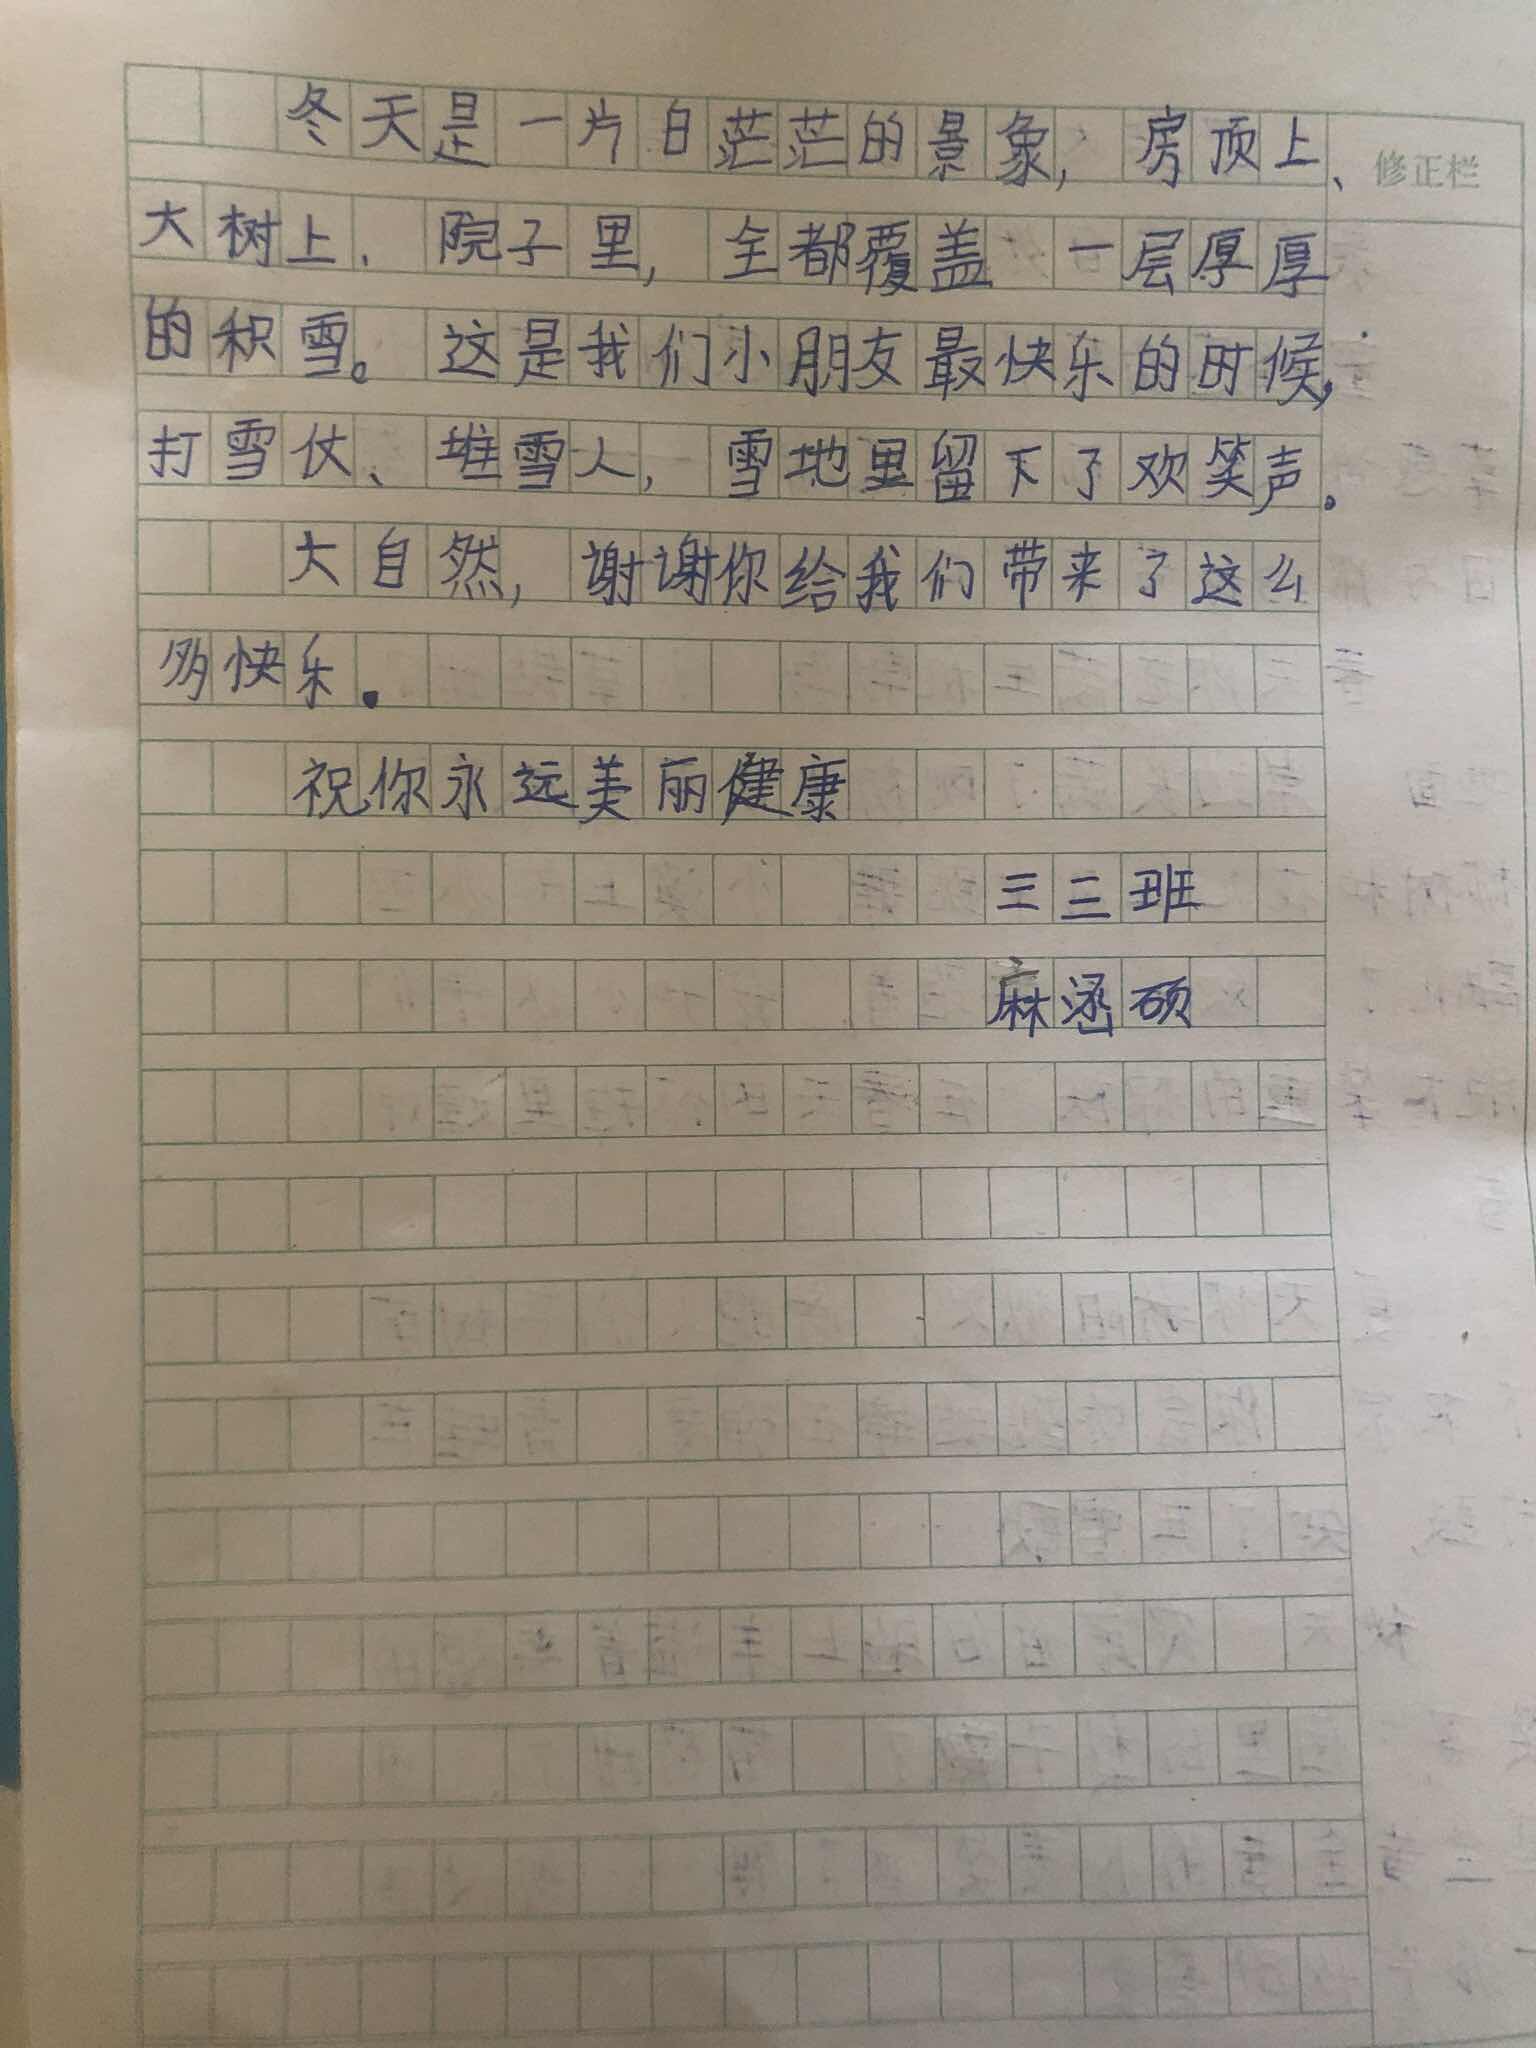 冬天是一片白茫茫的景象，房顶上、
修正栏
大树上、院子里，全都覆盖一层厚厚
的积雪。这是我们小朋友最快乐的时候，
打雪仗、堆雪人，雪地里留下了欢笑声。
大自然，谢谢你给我们带来了这么
多快乐。
祝你永远美丽健康
三三班
麻涵硕